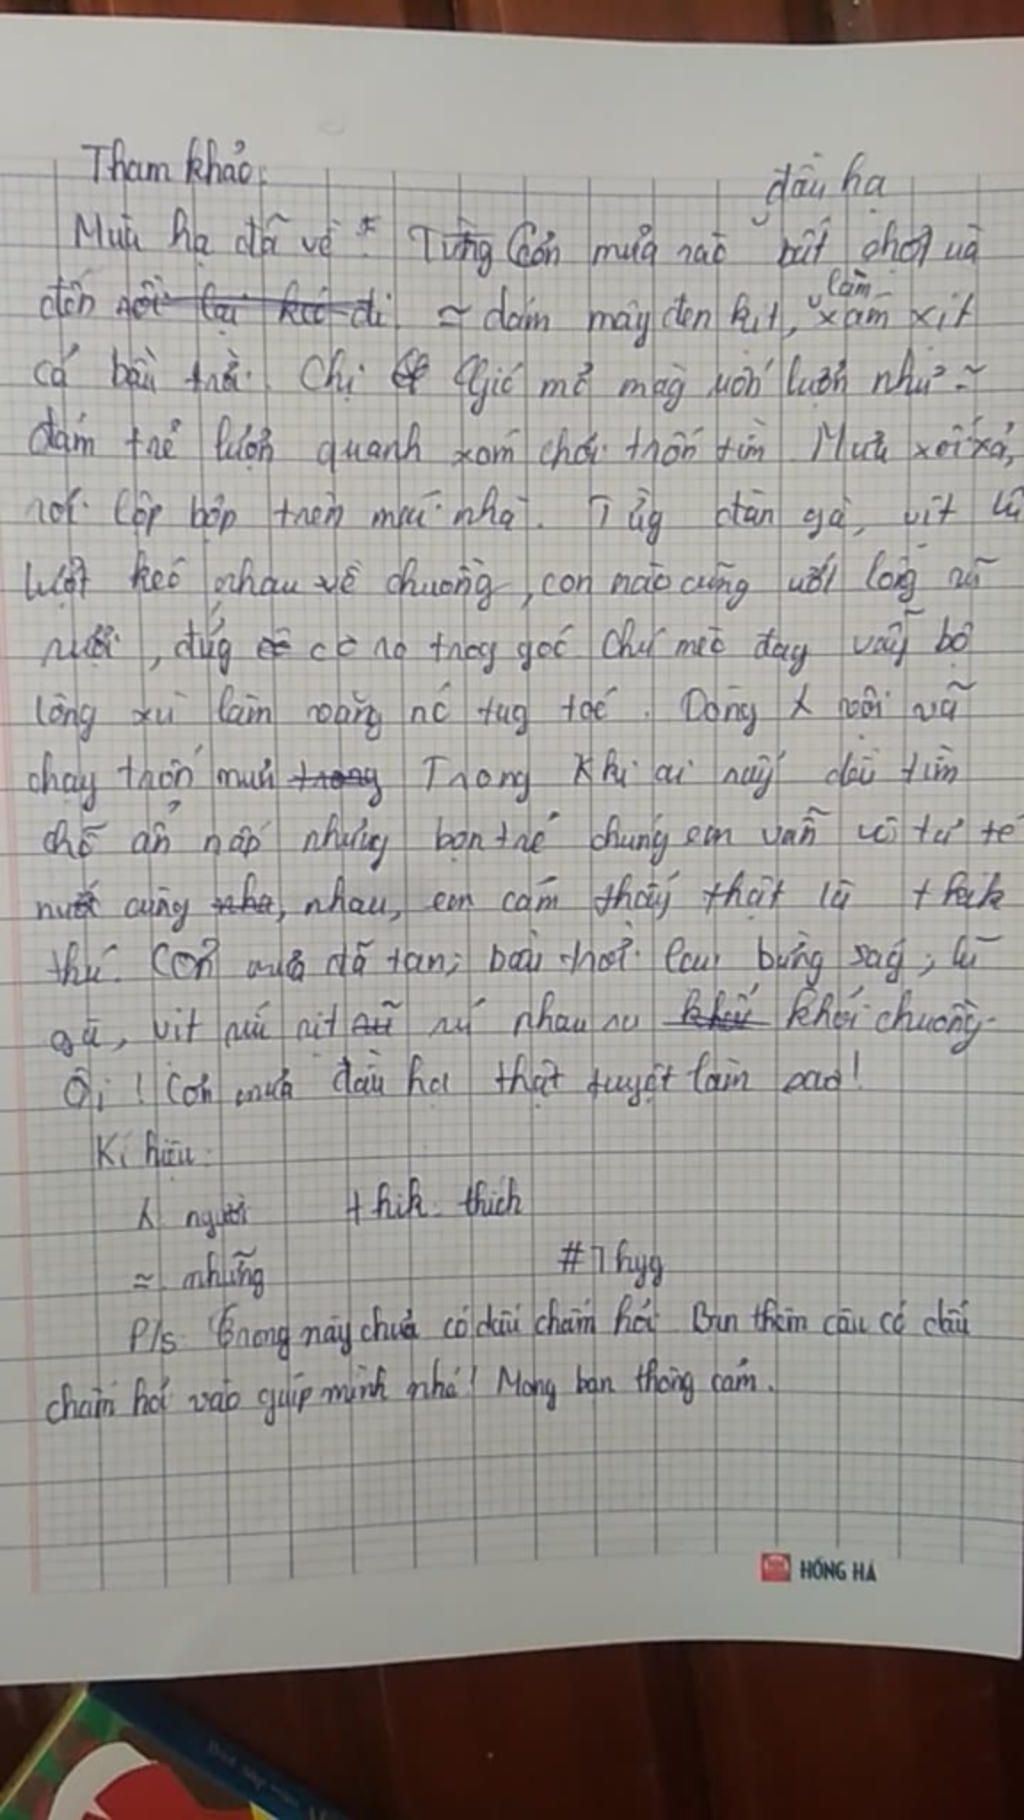 Tham khảo:
đầu hạ
Mùa hạ đã về. Cơn mưa rào bất chợt ùa
làm
đến ≈ đám mây đen kịt, xám xịt
cả bầu trời. Chị Gió mở màg uốn lượn như ≈
đám trẻ lượn quanh xóm chơi trốn tìm Mưa xối xả,
rơi lộp bộp trên mái nhà. Từg đàn gà, vịt lũ
lượt kéo nhau về chuồng, con nào cũng ướt lôg rũ
rượi, đứg co ro trog góc Chú mèo đag vẫy bộ
lông xù làm nc tug toé. Dòng λ vội vã
chạy trốn mưa Trong khi ai nấy đều tìm
chỗ ẩn nấp nhưng bọn trẻ chúng em vẫn vô tư té
nước cùng nhau, em cảm thấy thật là thik
thú. Cơn mưa đã tan, bầu trời lại bừng ság, lũ
gà, vịt ríu rít rủ nhau ra khỏi chuồng.
Ôi! Cơn mưa đầu hạ thật tuyệt làm sao!
Kí hiệu:
λ người thik: thích
#Thyg
≈ những
P/s: Trong này chưa có dấu chấm hỏi Bạn thêm câu có dấu
chấm hỏi vào giúp mình nhé! Mong bạn thông cảm.
HỒNG HÀ